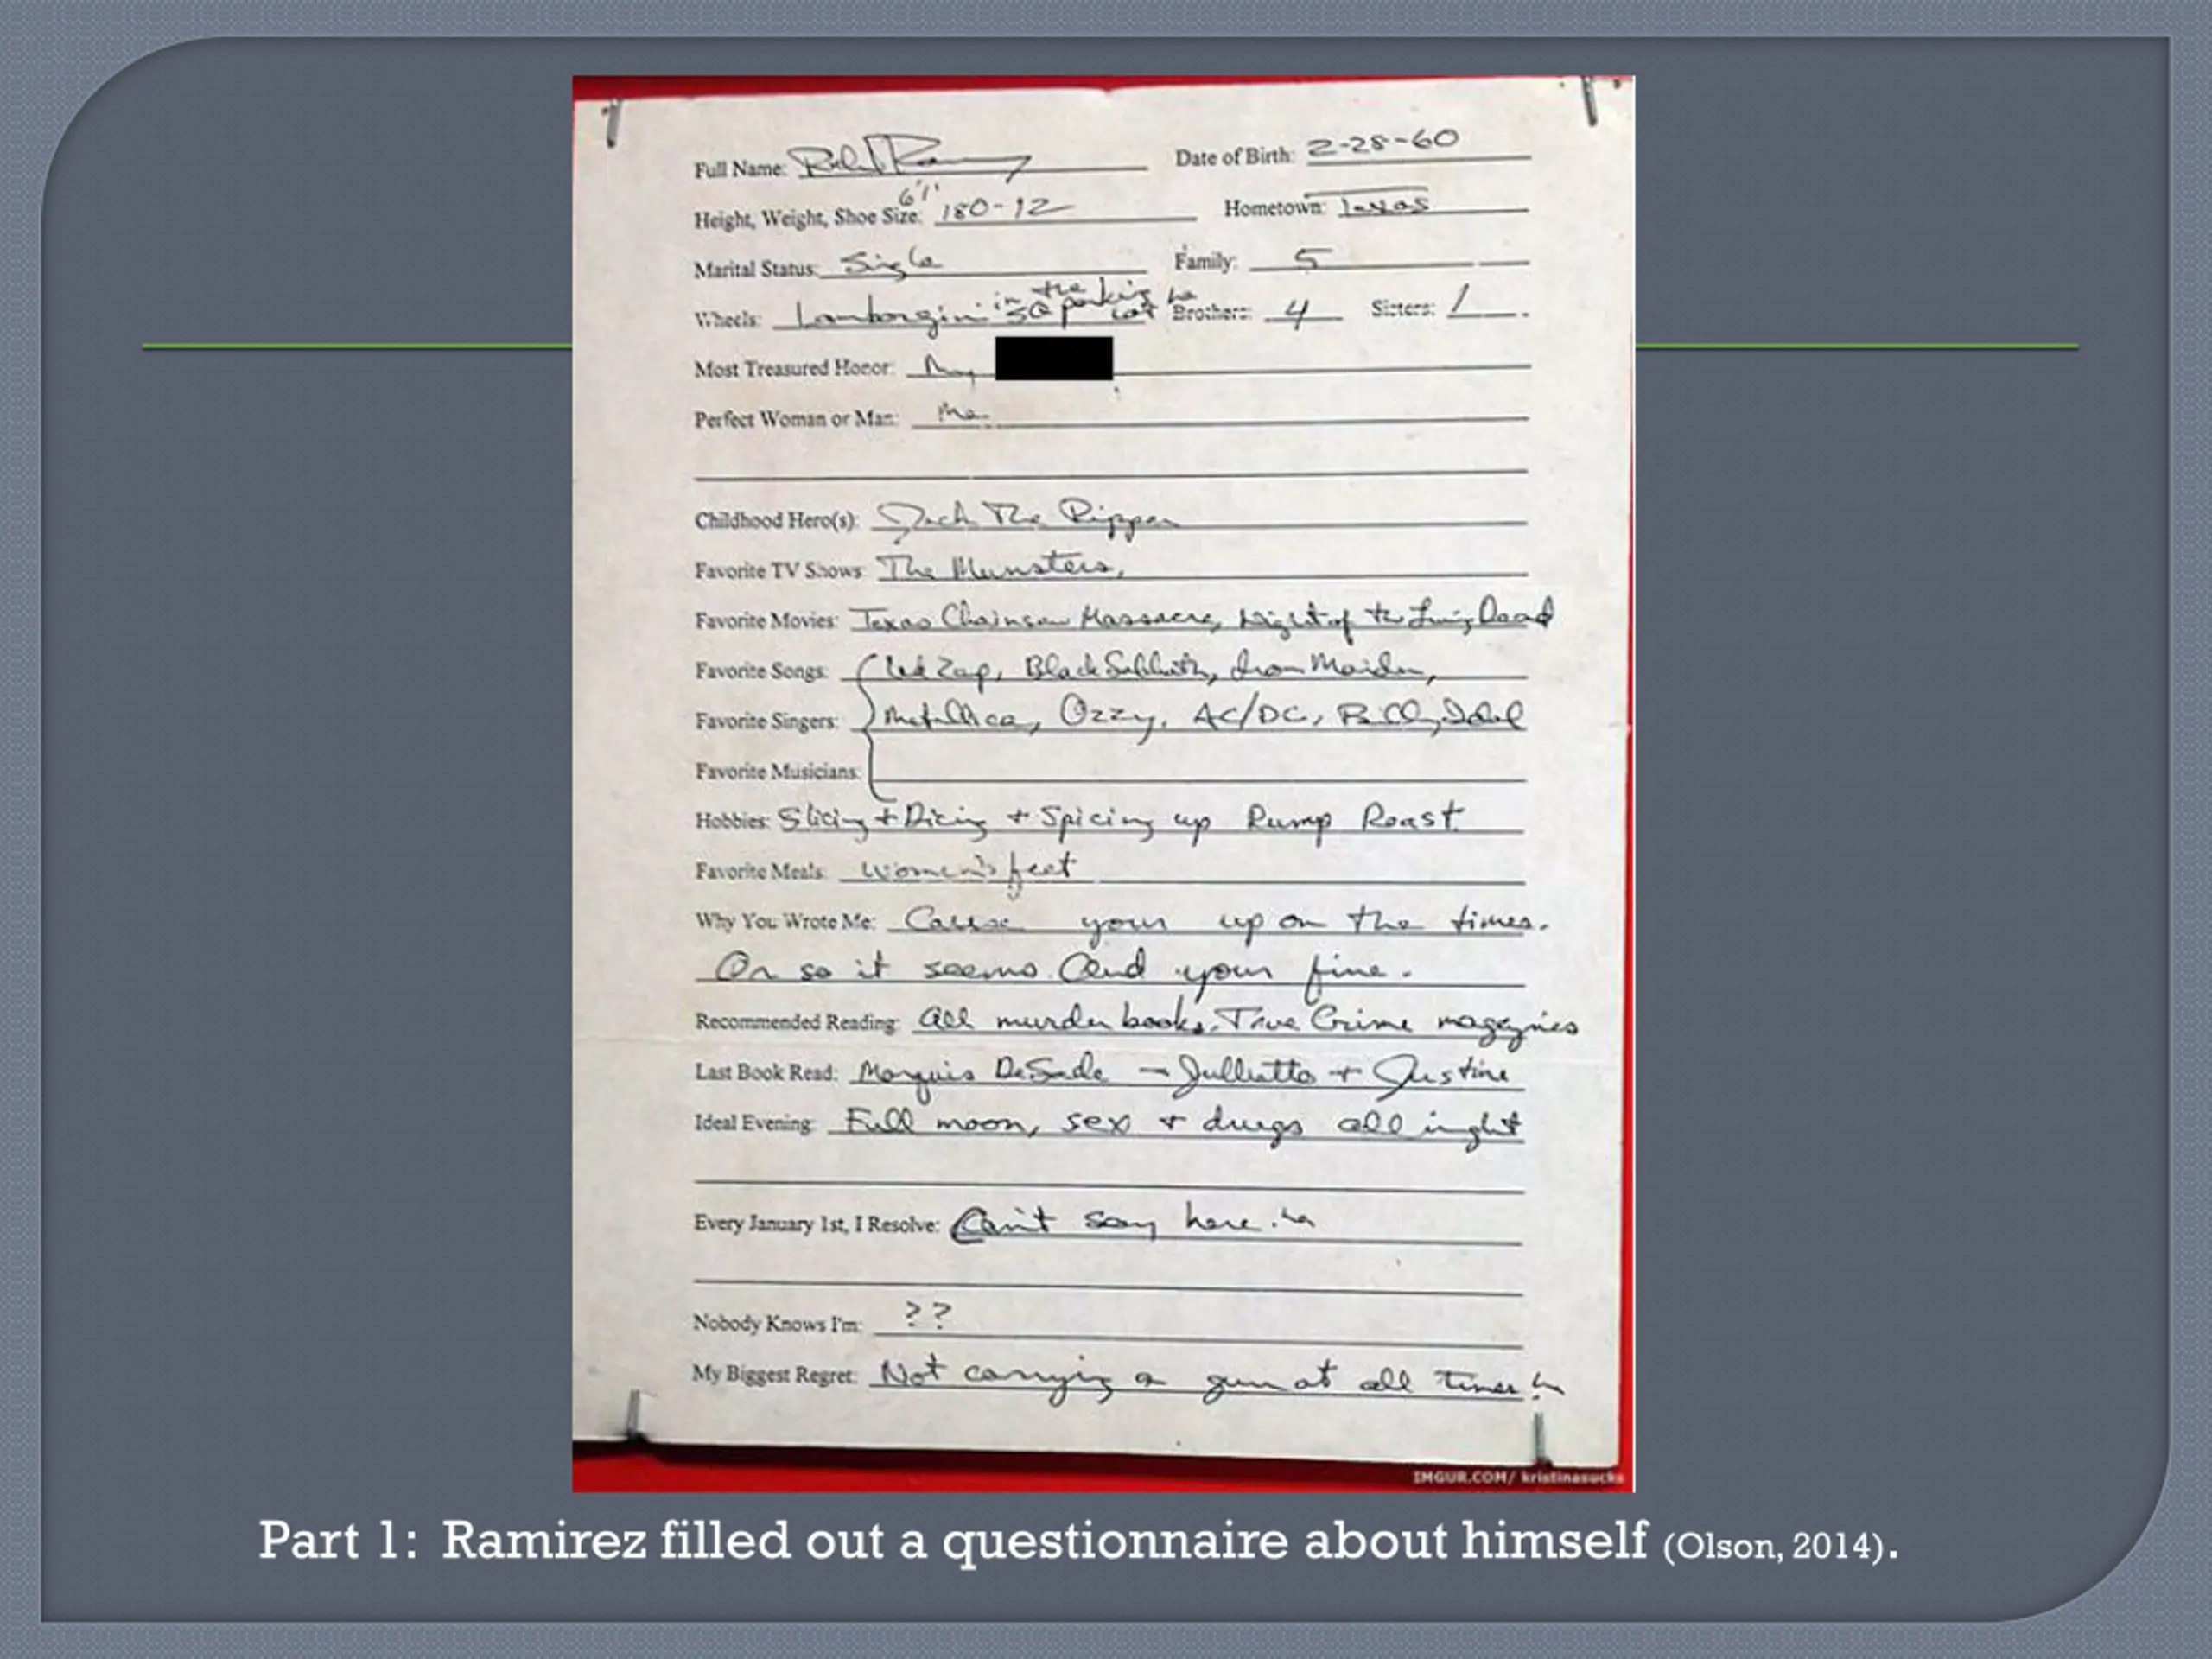 Full Name: Date of Birth: 2-28-60
Height, Weight, Shoe Size: 6'1" 180-12 Hometown: Texas
Marital Status: Single Family: 5
Wheels: Lamborgini in the SQ parking lot ha Brothers: 4 Sisters: 1
Most Treasured Honor: My
Perfect Woman or Man: Me
Childhood Hero(s): Jack The Ripper
Favorite TV Shows: The Munsters,
Favorite Movies: Texas Chainsaw Massacre, Night of the Living Dead
Favorite Songs: Led Zep, Black Sabbath, Iron Maiden,
Favorite Singers: Metallica, Ozzy, AC/DC, Billy Idol
Favorite Musicians:
Hobbies: Slicing + Dicing + Spicing up Rump Roast
Favorite Meals: women's feet
Why You Wrote Me: Cause your up on the times.
Or so it seems. And your fine.
Recommended Reading: All murder books, True Crime magazines
Last Book Read: Marquis DeSade - Julliette + Justine
Ideal Evening: Full moon, sex + drugs all night
Every January 1st, I Resolve: Can't say here. ha
Nobody Knows I'm: ??
My Biggest Regret: Not carrying a gun at all times!
IMGUR.COM/ kristinasucks
Part 1: Ramirez filled out a questionnaire about himself (Olson, 2014).